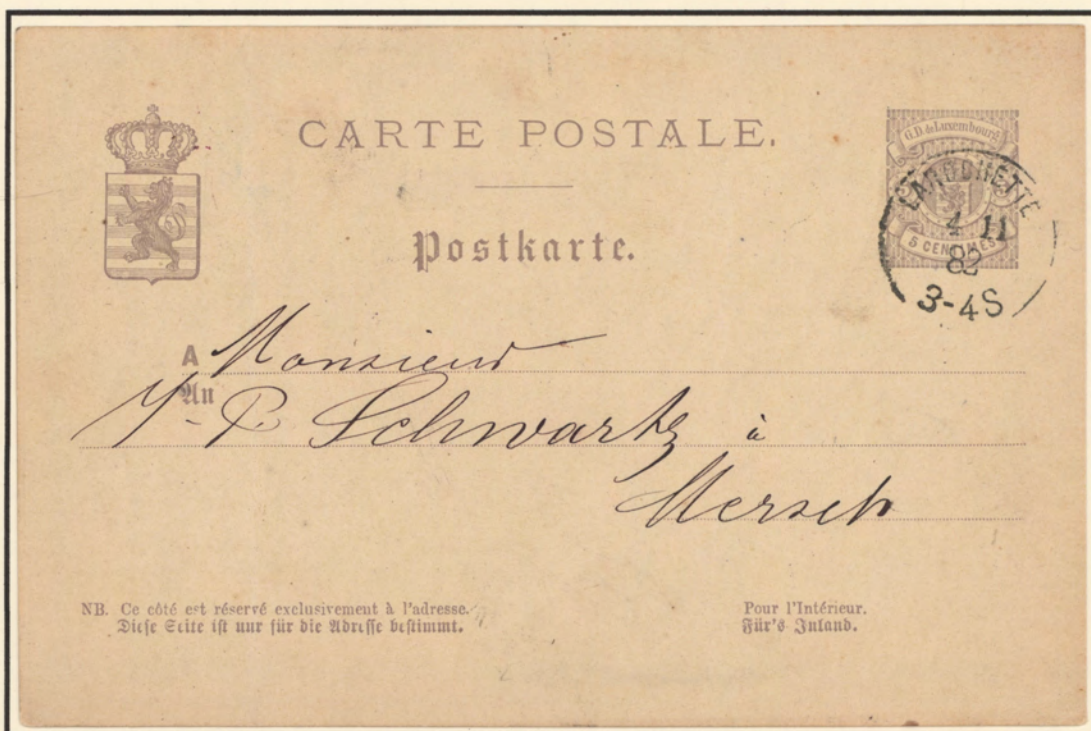 CARTE POSTALE.
G.D. de Luxembourg
LAROCHETTE
4 11
82
3-4S
5 CENTIMES
Postkarte.
A Monsieur
An
J-P. Schwartz à
Mersch
NB. Ce côté est réservé exclusivement à l'adresse.
Diese Seite ist nur für die Adresse bestimmt.
Pour l'Intérieur.
Für's Inland.